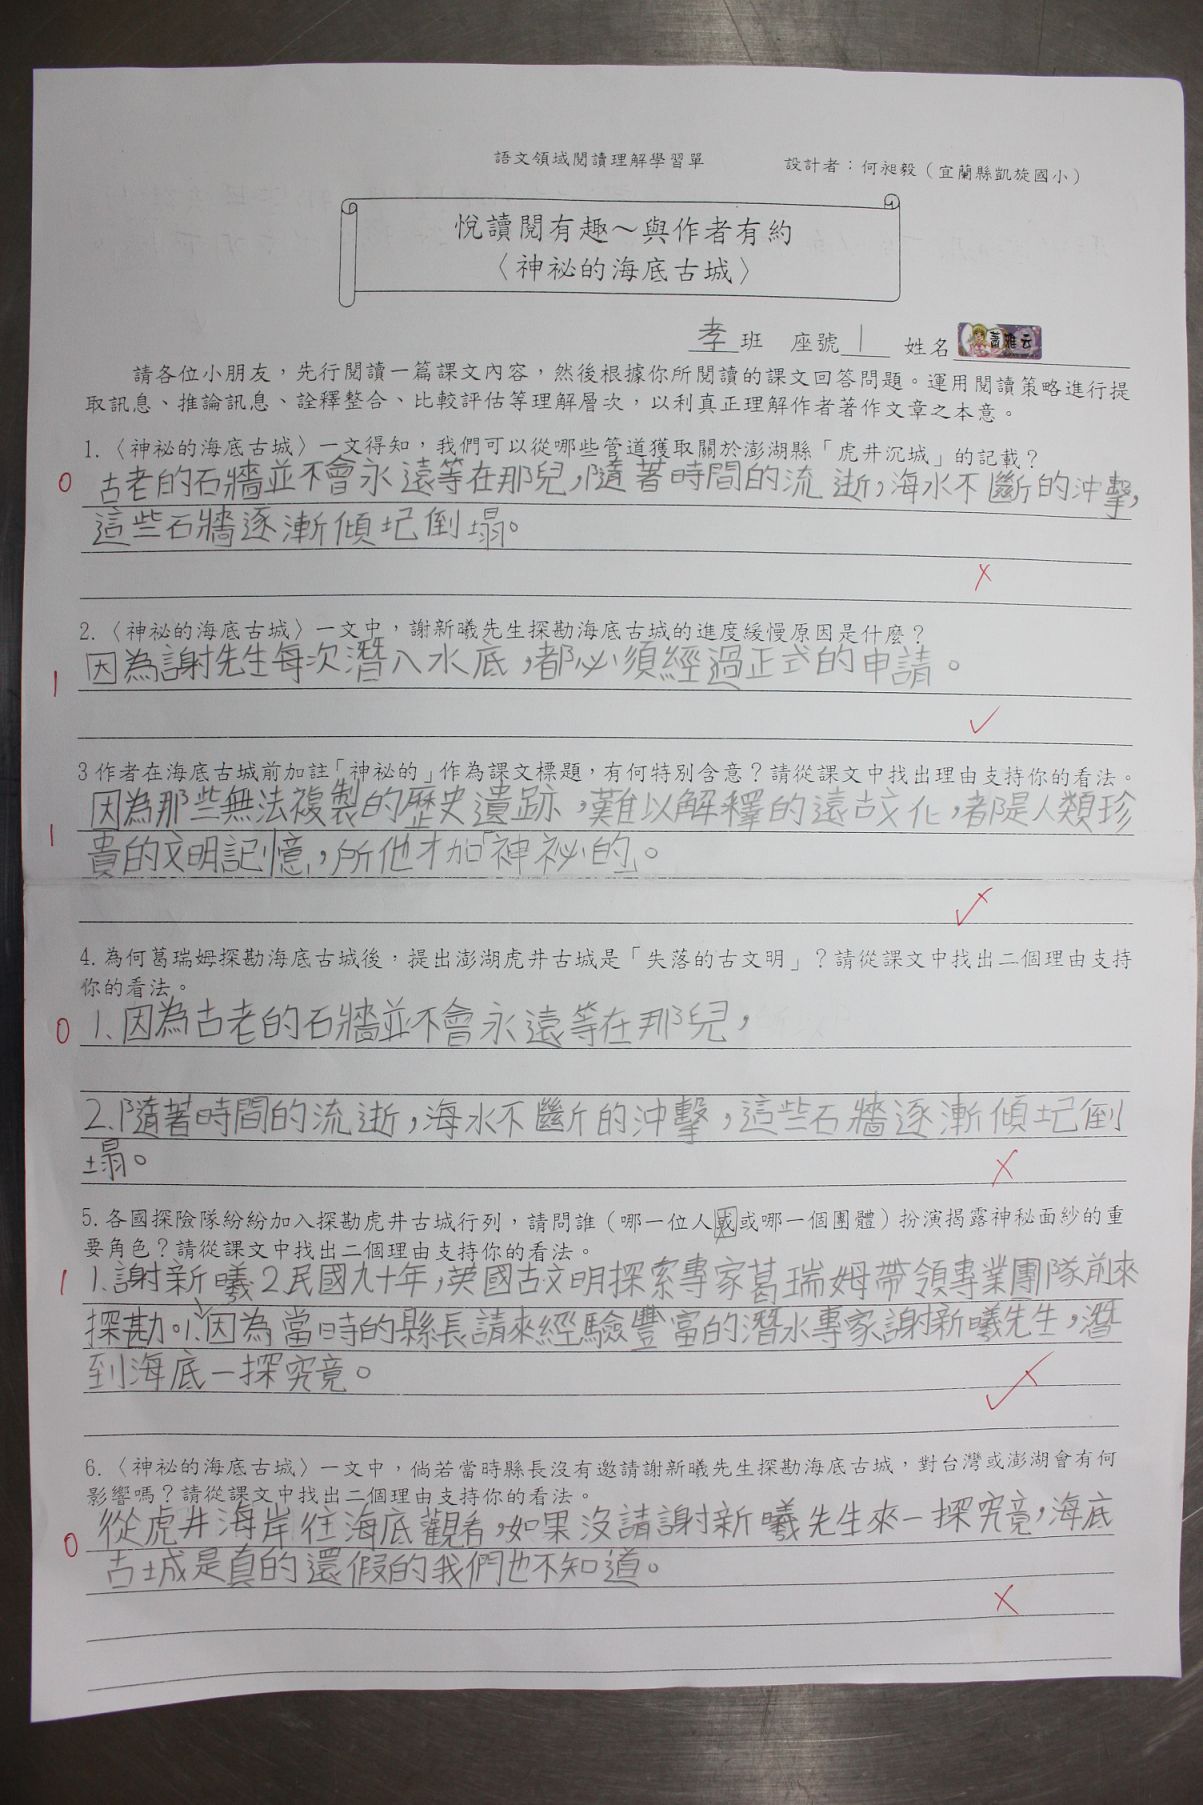 語文領域閱讀理解學習單 設計者：何昶毅（宜蘭縣凱旋國小）
悅讀閱有趣～與作者有約
〈神祕的海底古城〉
孝班 座號1 姓名 蕭雅云
請各位小朋友，先行閱讀一篇課文內容，然後根據你所閱讀的課文回答問題。運用閱讀策略進行提
取訊息、推論訊息、詮釋整合、比較評估等理解層次，以利真正理解作者著作文章之本意。
1.〈神祕的海底古城〉一文得知，我們可以從哪些管道獲取關於澎湖縣「虎井沉城」的記載？
0 古老的石牆並不會永遠等在那兒，隨著時間的流逝，海水不斷的沖擊，
這些石牆逐漸傾圮倒塌。
✗
2.〈神祕的海底古城〉一文中，謝新曦先生探勘海底古城的進度緩慢原因是什麼？
1 因為謝先生每次潛入水底，都必須經過正式的申請。
✓
3作者在海底古城前加註「神祕的」作為課文標題，有何特別含意？請從課文中找出理由支持你的看法。
因為那些無法複製的歷史遺跡，難以解釋的遠古文化，都是人類珍
1 貴的文明記憶，所他才加「神祕的」。
4.為何葛瑞姆探勘海底古城後，提出澎湖虎井古城是「失落的古文明」？請從課文中找出二個理由支持
你的看法。
0 1.因為古老的石牆並不會永遠等在那兒，
2.隨著時間的流逝，海水不斷的沖擊，這些石牆逐漸傾圮倒
塌。
✗
5.各國探險隊紛紛加入探勘虎井古城行列，請問誰（哪一位人或或哪一個團體）扮演揭露神秘面紗的重
要角色？請從課文中找出二個理由支持你的看法。
1 1.謝新曦2民國九十年，英國古文明探索專家葛瑞姆帶領專業團隊前來
探勘。1.因為當時的縣長請來經驗豐富的潛水專家謝新曦先生，潛
到海底一探究竟。
6.〈神祕的海底古城〉一文中，倘若當時縣長沒有邀請謝新曦先生探勘海底古城，對台灣或澎湖會有何
影響嗎？請從課文中找出二個理由支持你的看法。
0 從虎井海岸往海底觀看，如果沒請謝新曦先生來一探究竟，海底
古城是真的還假的我們也不知道。
✗